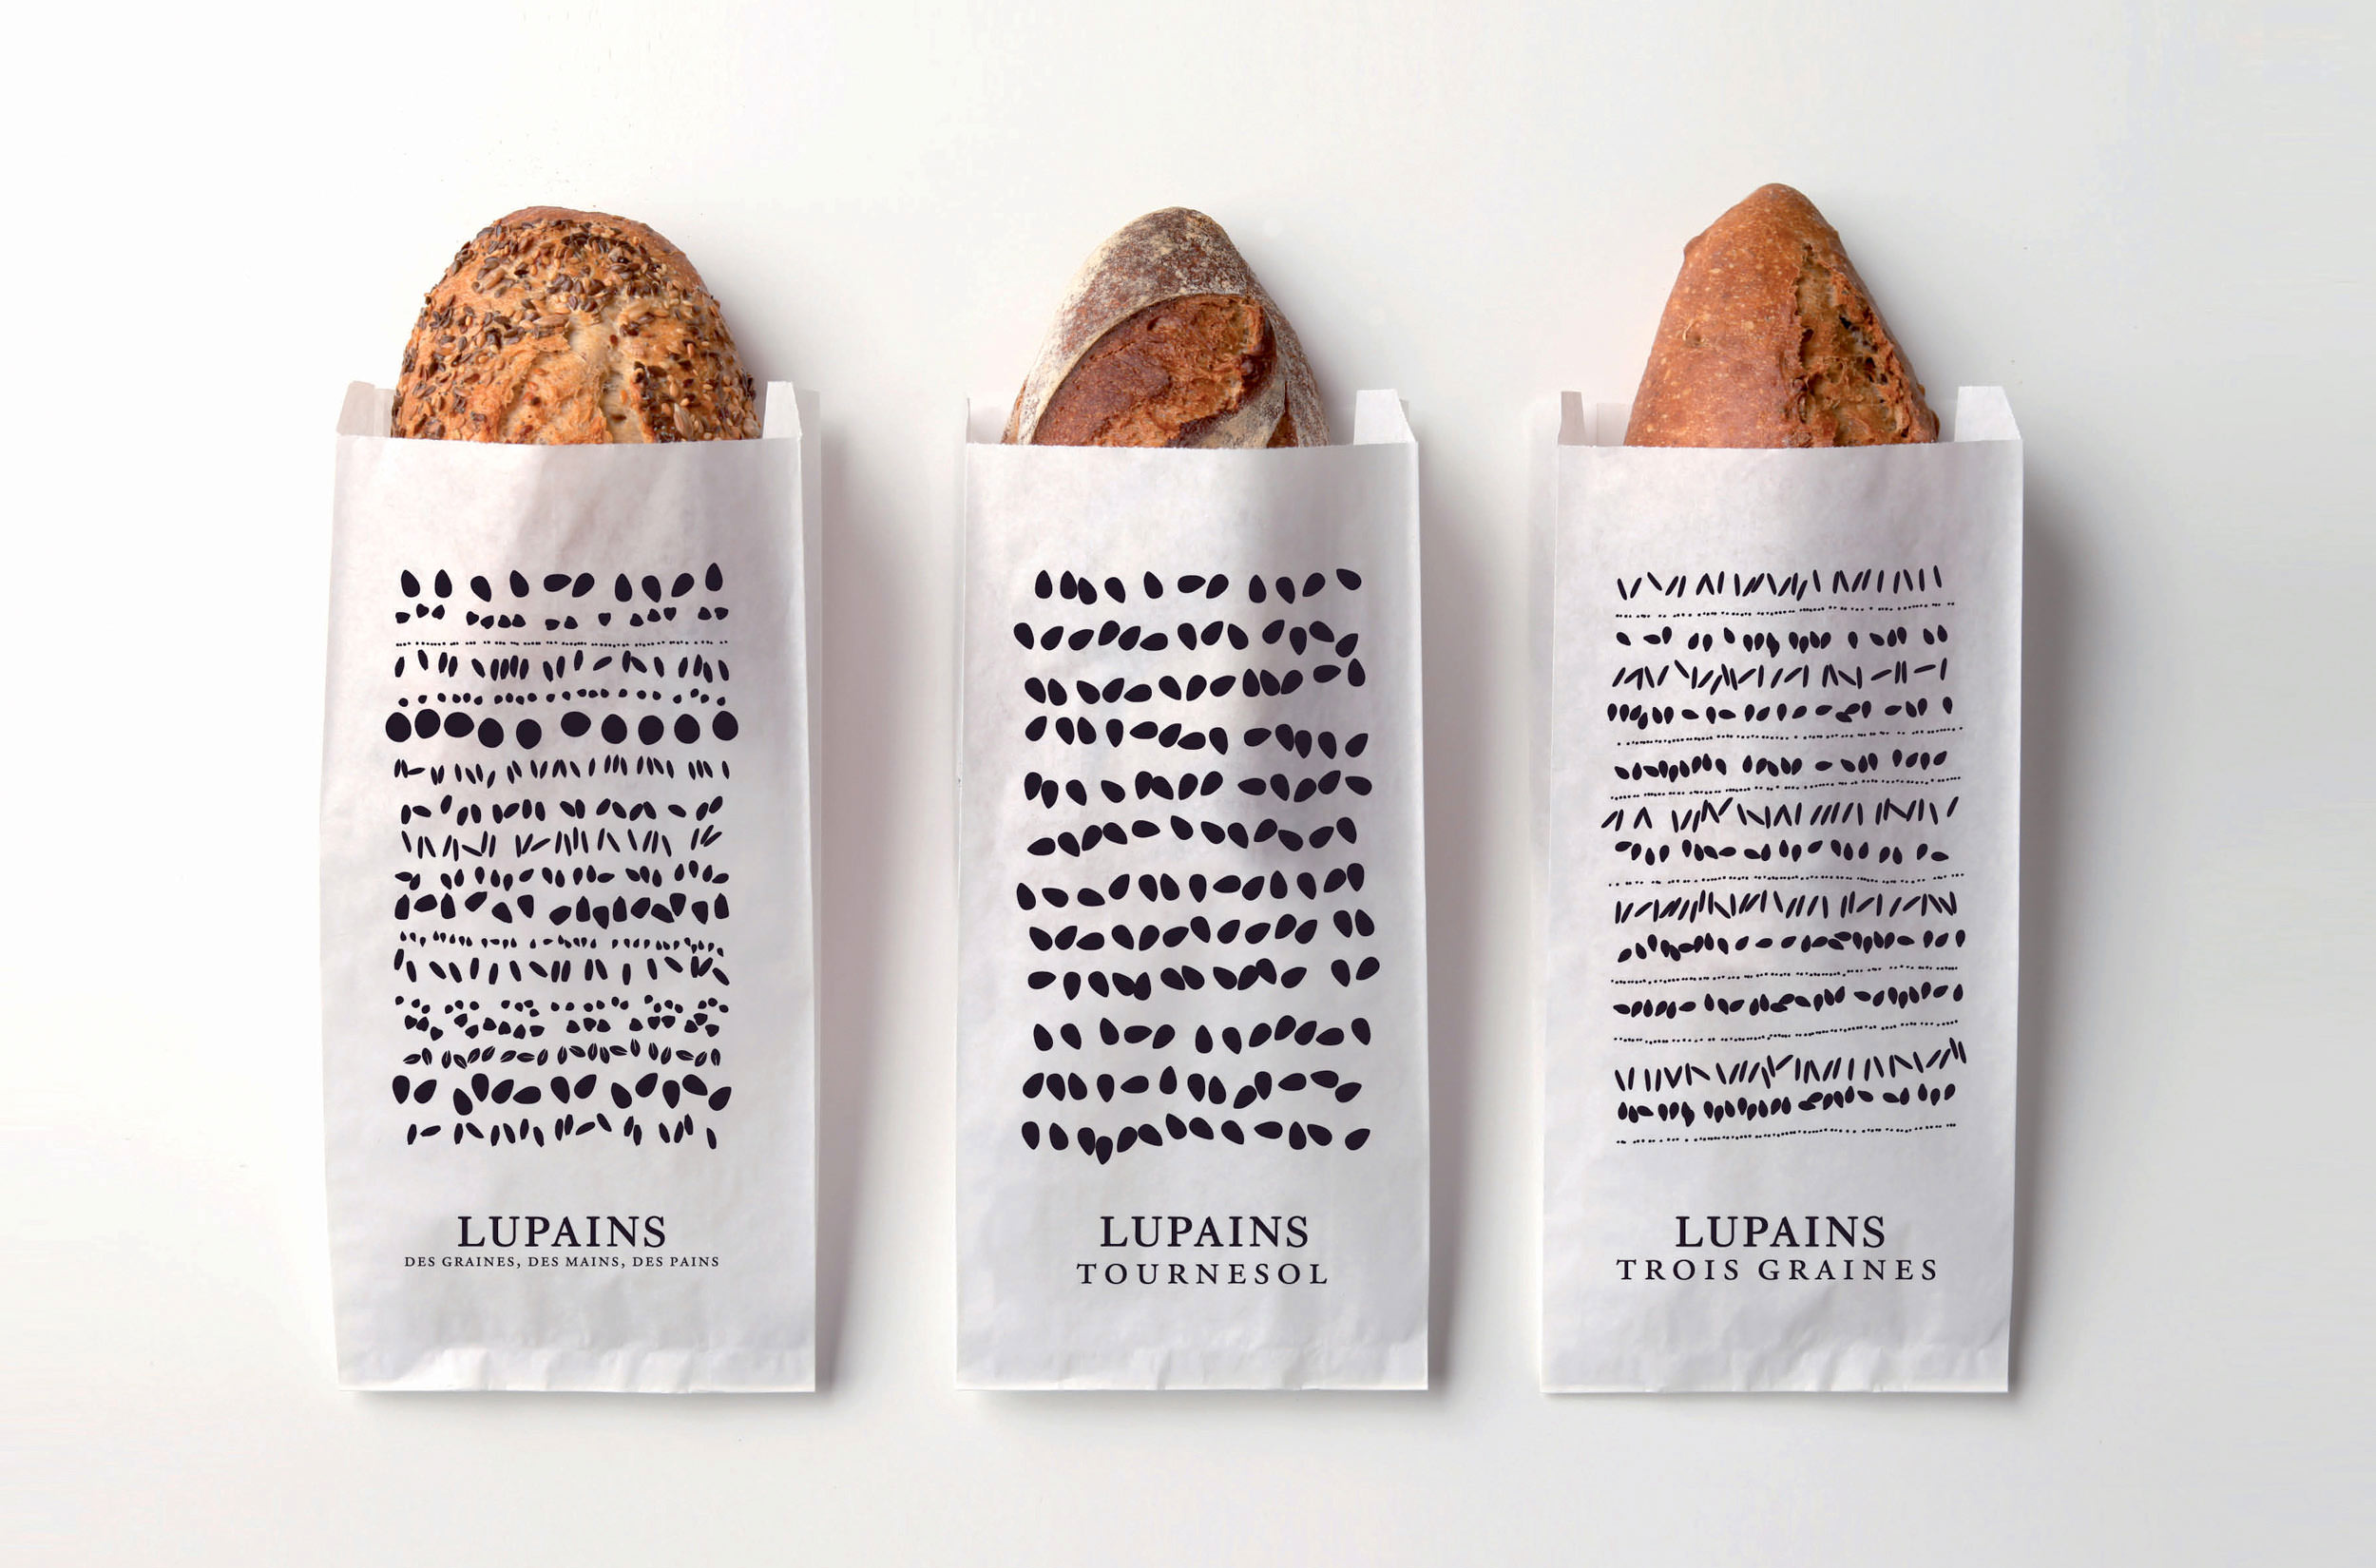 LUPAINS
DES GRAINES, DES MAINS, DES PAINS
LUPAINS
TOURNESOL
LUPAINS
TROIS GRAINES